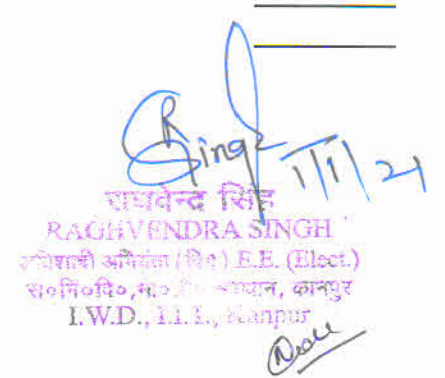 RSingh 1/1/21
राघवेन्द्र सिंह
RAGHVENDRA SINGH
अभियंता (वि०) E.E. (Elect.)
स०नि०वि०, कानपुर
I.W.D., I.I.T., Kanpur